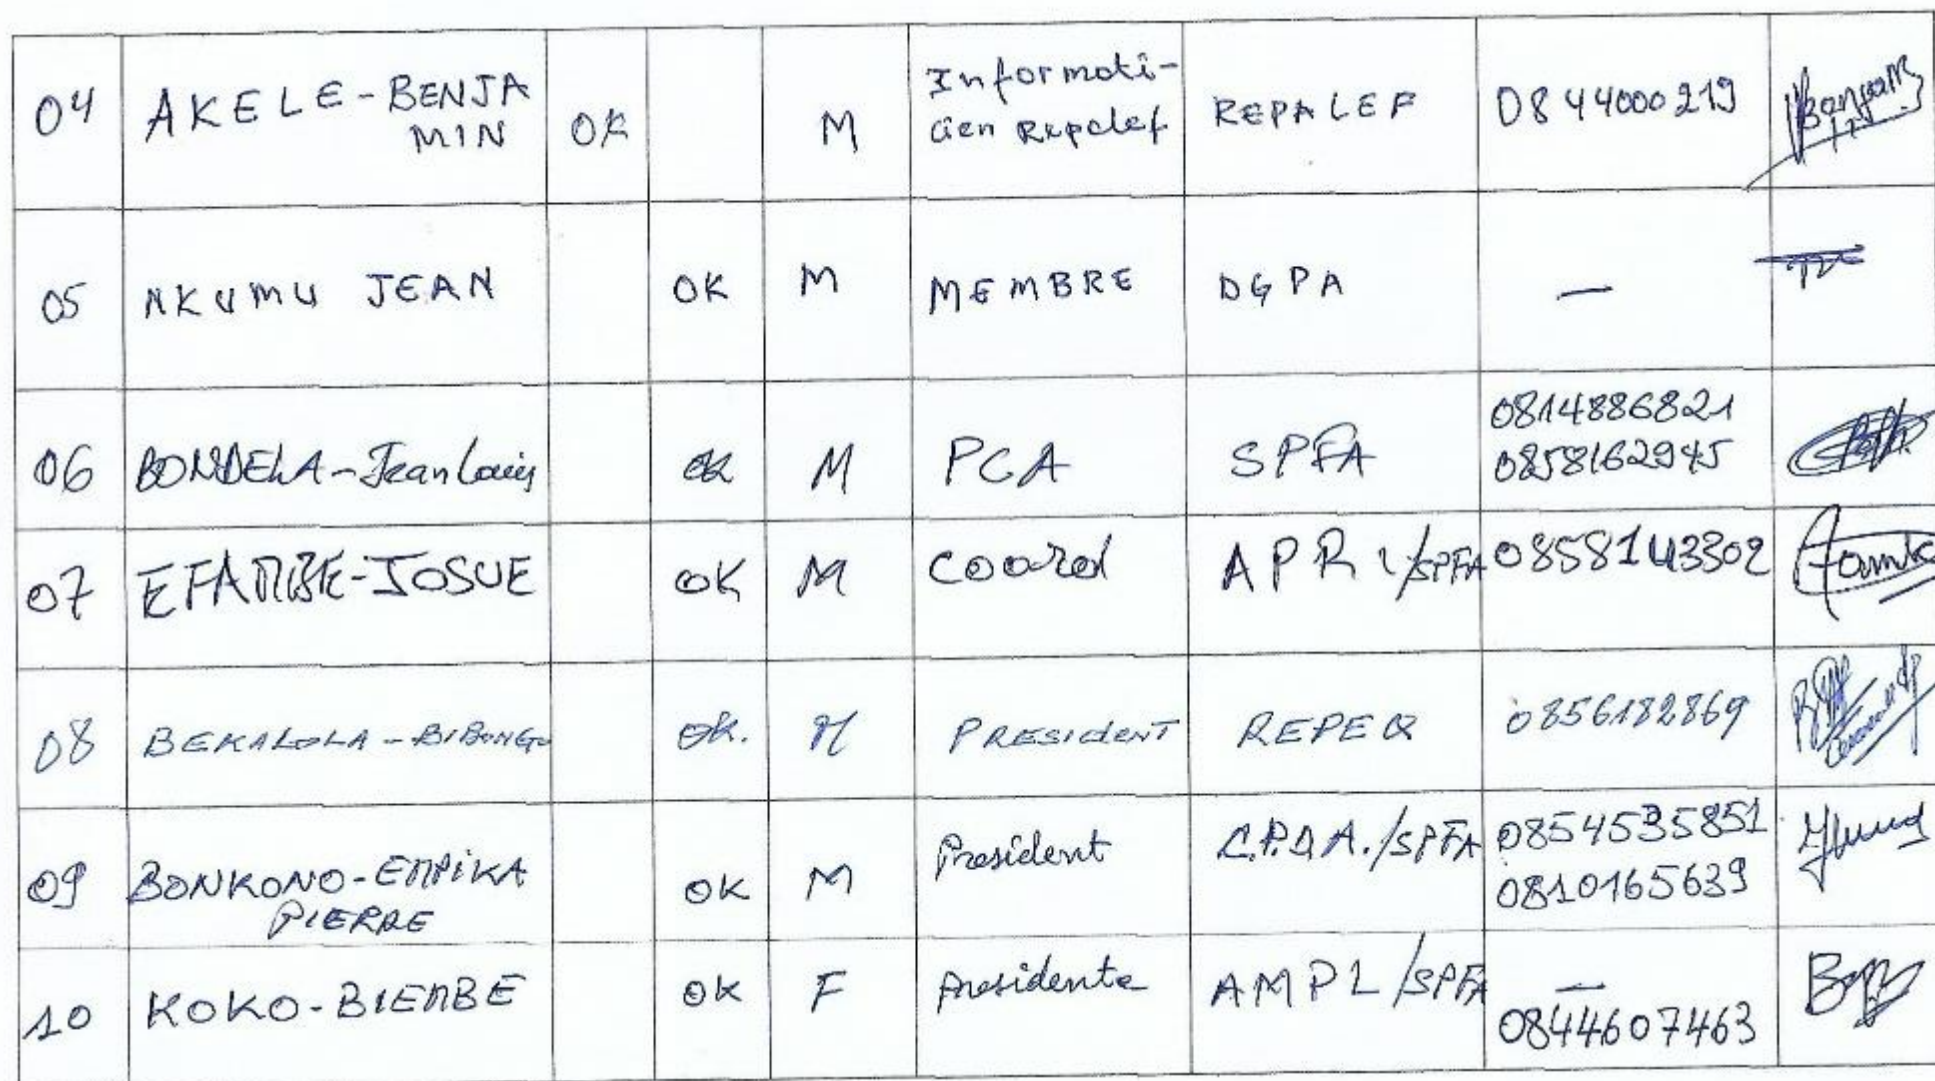 04 AKELE-BENJA MIN OK M Informati- cien Repalef REPALEF 0844000219
05 NKUMU JEAN OK M MEMBRE DGPA —
06 BONDELA-Jean Louis OK M PCA SPFA 0814886821 0858162945
07 EFAMBE-JOSUE OK M Coord APRL/SPFA 0858143302
08 BEKALOLA-BIBONGO OK. M PRESIDENT REPEQ 0856182869
09 BONKONO-EMPIKA PIERRE OK M President /SPFA 0854535851 0810165639
10 KOKO-BIEMBE OK F Presidente AMPL/SPFA — 0844607463